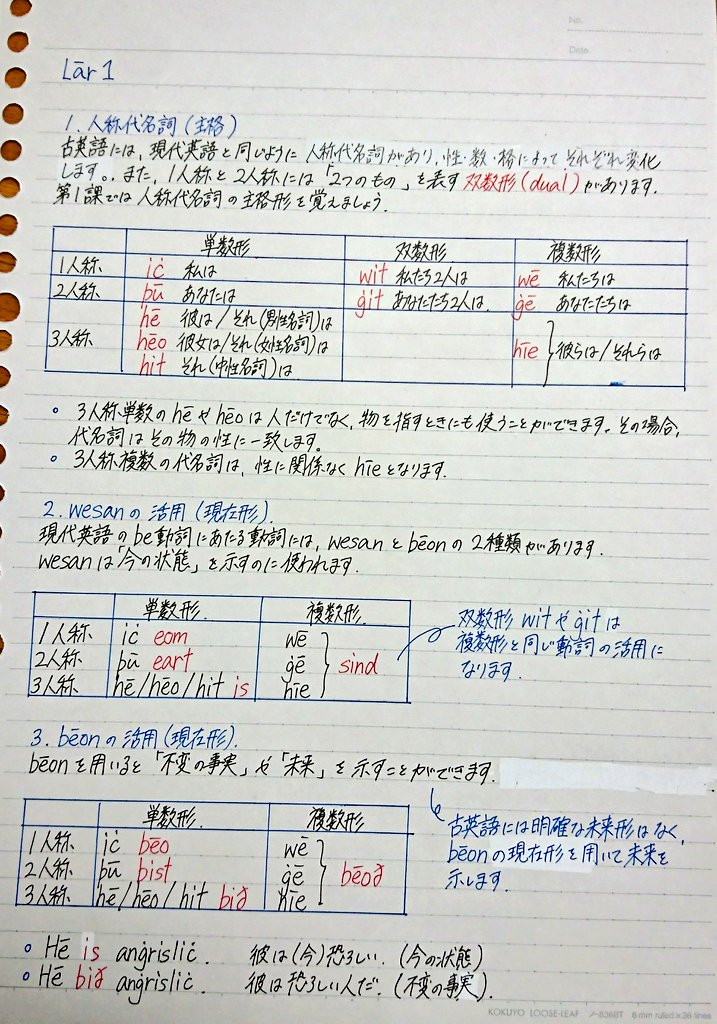 No.
Date
Lār 1
1. 人称代名詞 (主格)
古英語には、現代英語と同じように人称代名詞があり、性・数・格によってそれぞれ変化
します。. また、1人称と2人称には「2つのもの」を表す双数形(dual)があります.
第1課では人称代名詞の主格形を覚えましょう.
単数形 双数形 複数形
1人称 iċ 私は wit 私たち2人は wē 私たちは
2人称 þū あなたは ġit あなたたち2人は ġē あなたたちは
hē 彼は/それ(男性名詞)は
3人称 hēo 彼女は/それ(女性名詞)は hīe 彼らは/それらは
hit それ(中性名詞)は
○ 3人称単数のhēやhēoは人だけでなく、物を指すときにも使うことができます. その場合,
代名詞はその物の性に一致します。
○ 3人称複数の代名詞は、性に関係なくhīeとなります.
2. wesanの活用 (現在形).
現代英語のbe動詞にあたる動詞には、wesanとbēonの2種類があります.
wesanは「今の状態」を示すのに使われます.
単数形. 複数形
1人称 iċ eom wē
2人称 þū eart ġē sind
3人称 hē/hēo/hit is hīe
双数形 witやġitは
複数形と同じ動詞の活用に
なります.
3. bēonの活用(現在形).
bēonを用いると「不変の事実」や「未来」を示すことができます.
単数形. 複数形
1人称 iċ bēo wē
2人称 þū bist ġē bēoð
3人称 hē/hēo/hit bið hīe
古英語には明確な未来形はなく,
bēonの現在形を用いて未来を
示します.
○ Hē is anġrisliċ. 彼は(今)恐ろしい. (今の状態)
○ Hē bið anġrisliċ. 彼は恐ろしい人だ. (不変の事実)
KOKUYO LOOSE-LEAF ノ-836BT 6mm ruled×36 lines